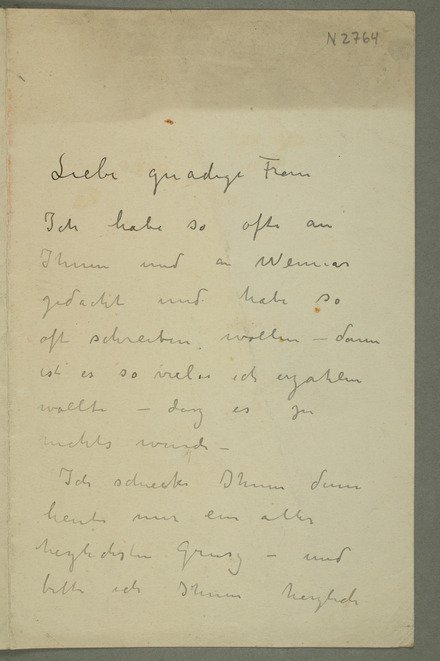 N 2764
Liebe gnädige Frau
Ich habe so oft an
Ihnen und an Weimar
gedacht und habe so
oft schreiben wollen – dann
ist es so viel das ich erzählen
wollte – dasz es zu
nichts wurde –
Ich schicke Ihnen denn
heute nur ein aller
herzlichster Grusz – und
bitte ich Ihnen herzlich